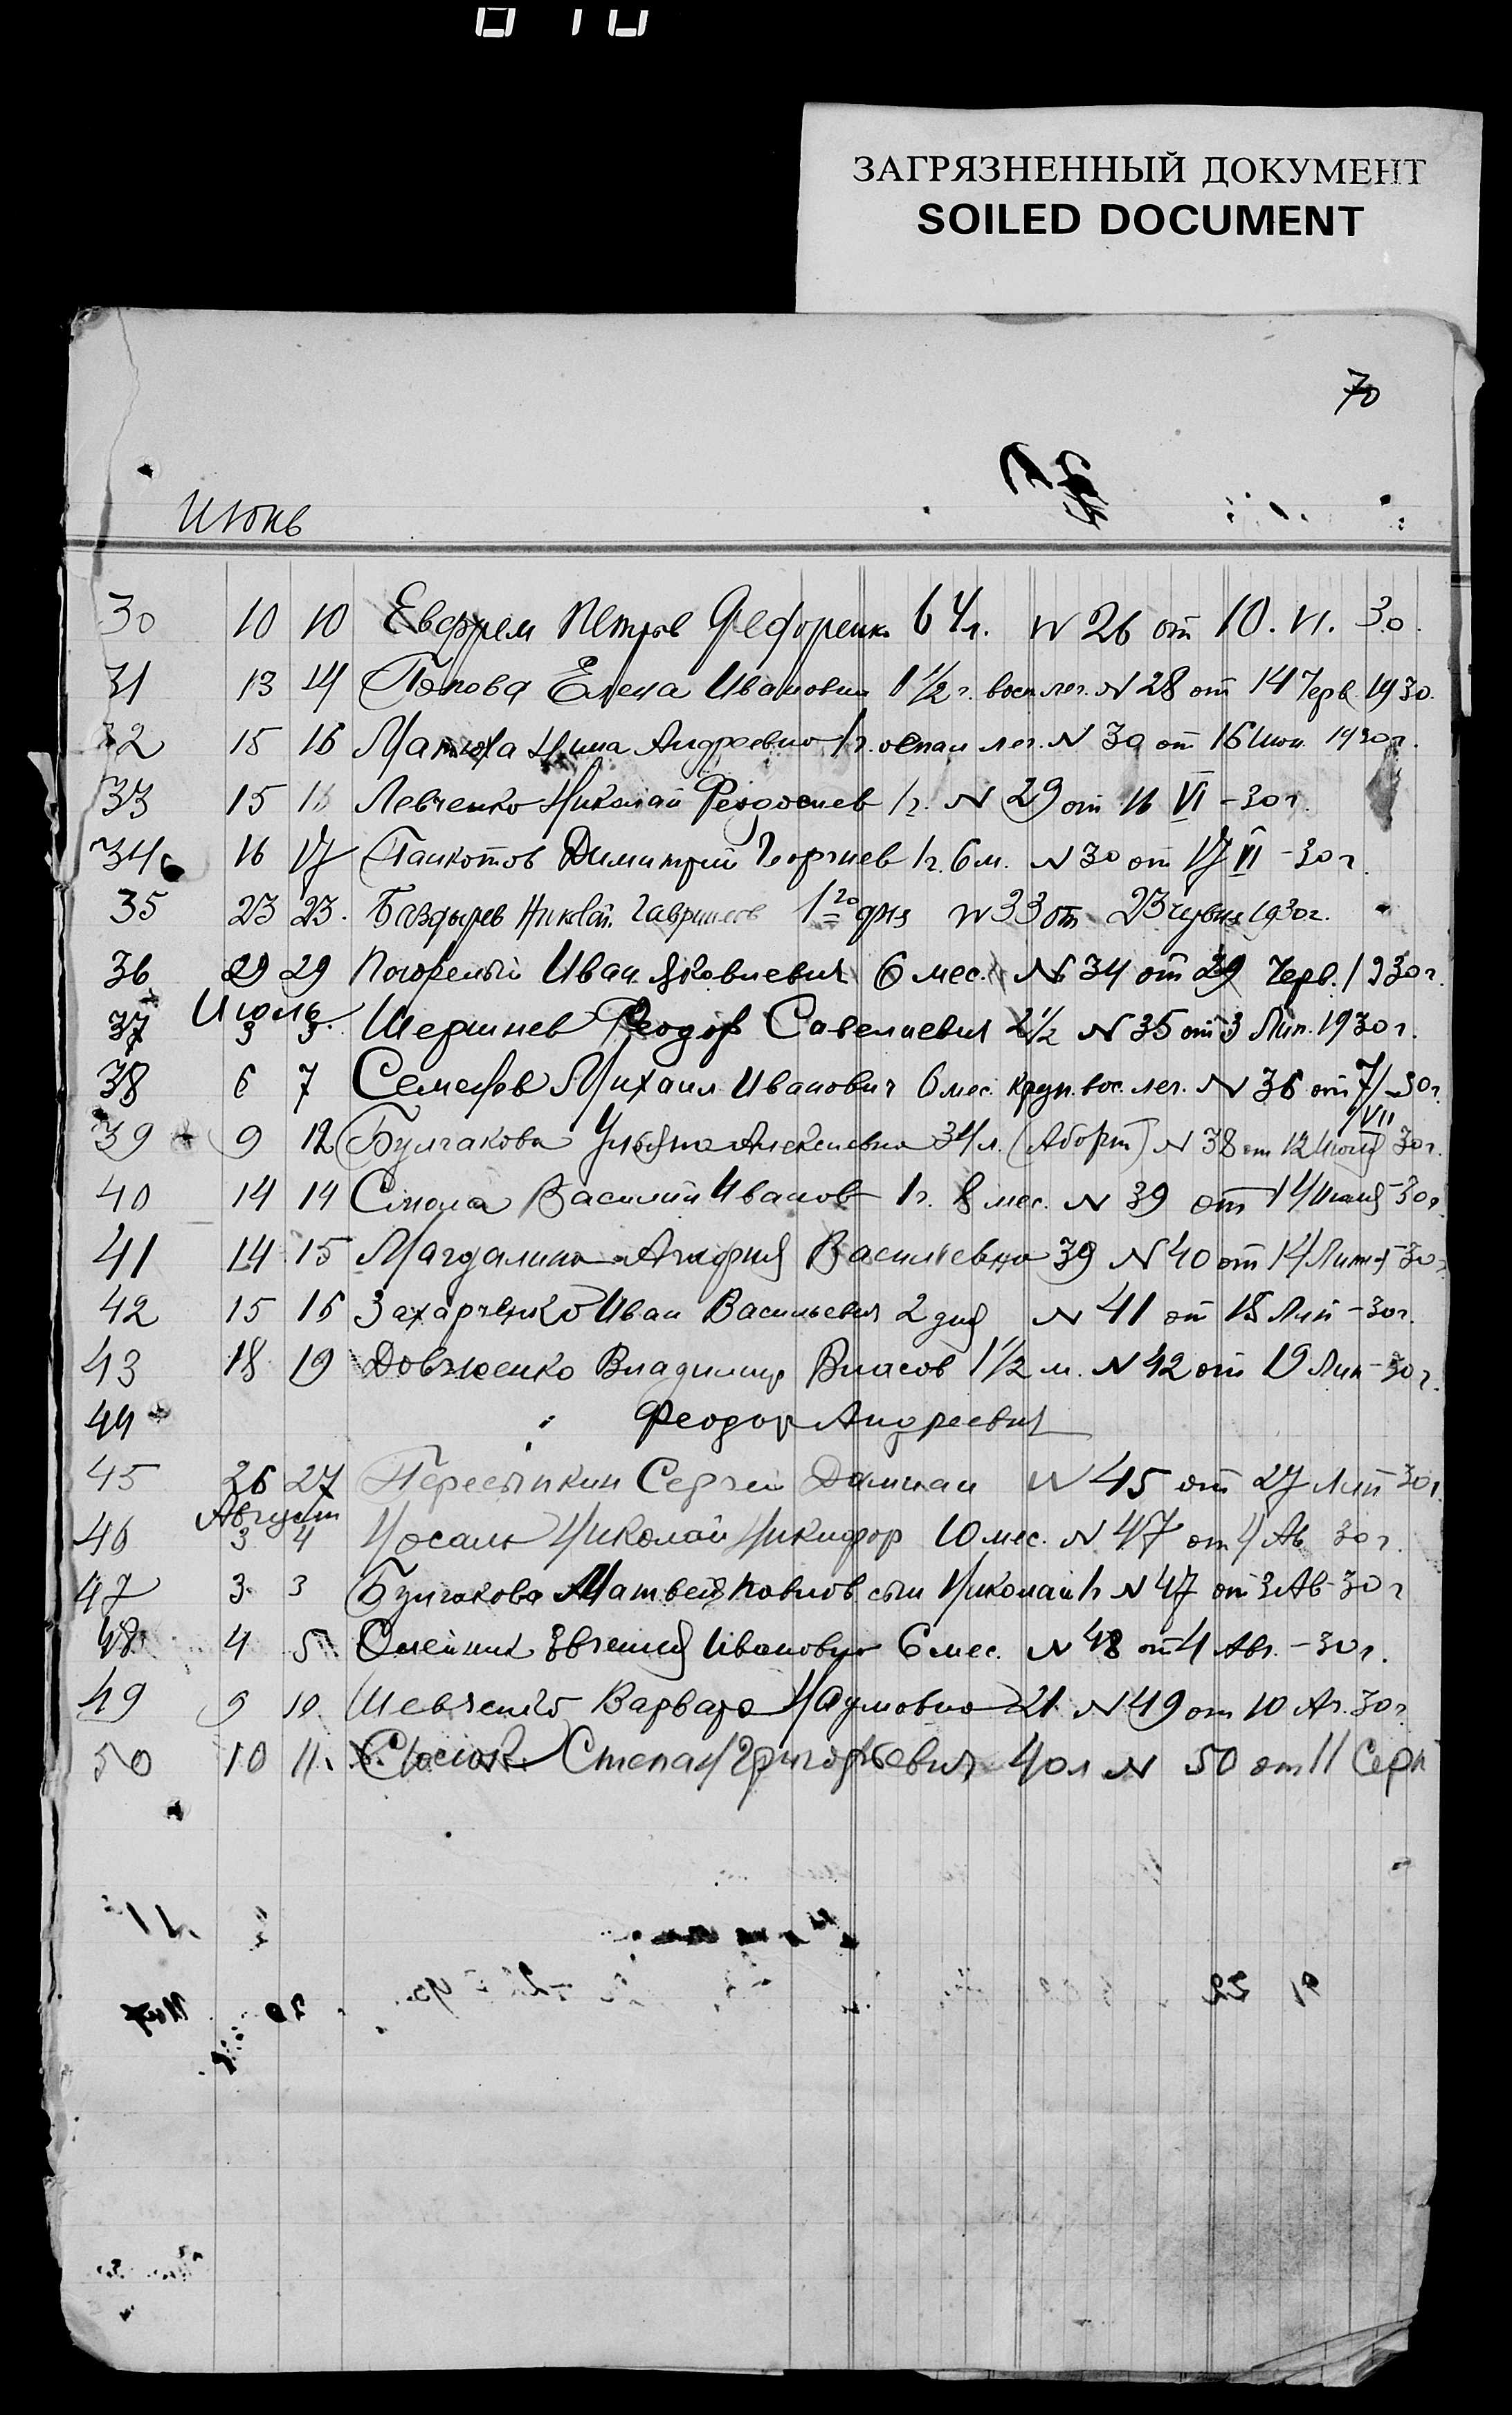 ЗАГРЯЗНЕННЫЙ ДОКУМЕНТ
SOILED DOCUMENT
70
Июнь
30 10 10 Евфрем Петров Федоренк 64 л. N 26 от 10. VI. 30.
31 13 14 Попова Елена Ивановн 1 1/2 г. восп лег. N 28 от 14 Черв. 1930.
32 15 16 Матюха Нина Андреевно 1 г. лег. N 30 от 16 Июн 1930 г.
33 15 Левченко Николай Феодосиев 1 г. N 29 от 16 VI - 30 г.
34 16 17 Димитрий Георгиев 1 г. 6 м. N 30 от 17 VI - 30 г.
35 23 23. Баздырев Николай. Гаврилов дня N 33 от 23 червня 1930 г.
36 29 29 Погорелый Иван Яковлевич 6 мес. N 34 от 29 Черв. 1930 г.
Июль
37 3 3. Шершнев Феодор Савелиевич 2 1/2 N 35 от 3 Лип. 1930 г.
38 6 7 Михаил Иванович 6 мес. круп. вос. лег. N 36 от 7/VII - 30 г.
39 9 12 Булгакова Ульяна Алексеевна 34 л. (Аборт) N 38 от 12 Июля 30 г.
40 14 14 Смола Василий Иванов 1 г. 8 мес. N 39 от 14 Июля - 30 г.
41 14 15 Магдалина Агафия Василевна 39 N 40 от 14 Липня - 30 г.
42 15 16 Захарченко Иван Васильевич 2 дня N 41 от Лип - 30 г.
43 18 19 Довженко Владимир Власов 1 1/2 м. N 42 от 19 Лип - 30 г.
44 Феодор Андреевич
45 26 27 Пересыпкин Сергей Дамиан N 45 от 27 Лип 30 г.
Август
46 3 4 Носаль Николай Никифор 10 мес. N 47 от 4 Ав 30 г.
47 3. 3 Булгакова Матвей Повлов сын Николай 1 г N 47 от 3 Ав - 30 г
48 4 5 Олейник Евгения Ивановно 6 мес. N 48 от 4 Авг. - 30 г.
49 9 10 Шевченко Варвара Наумовно 21 N 49 от 10 Аг. 30 г
50 10 11. Степан Григорьевич 40 л N 50 от 11 Серп